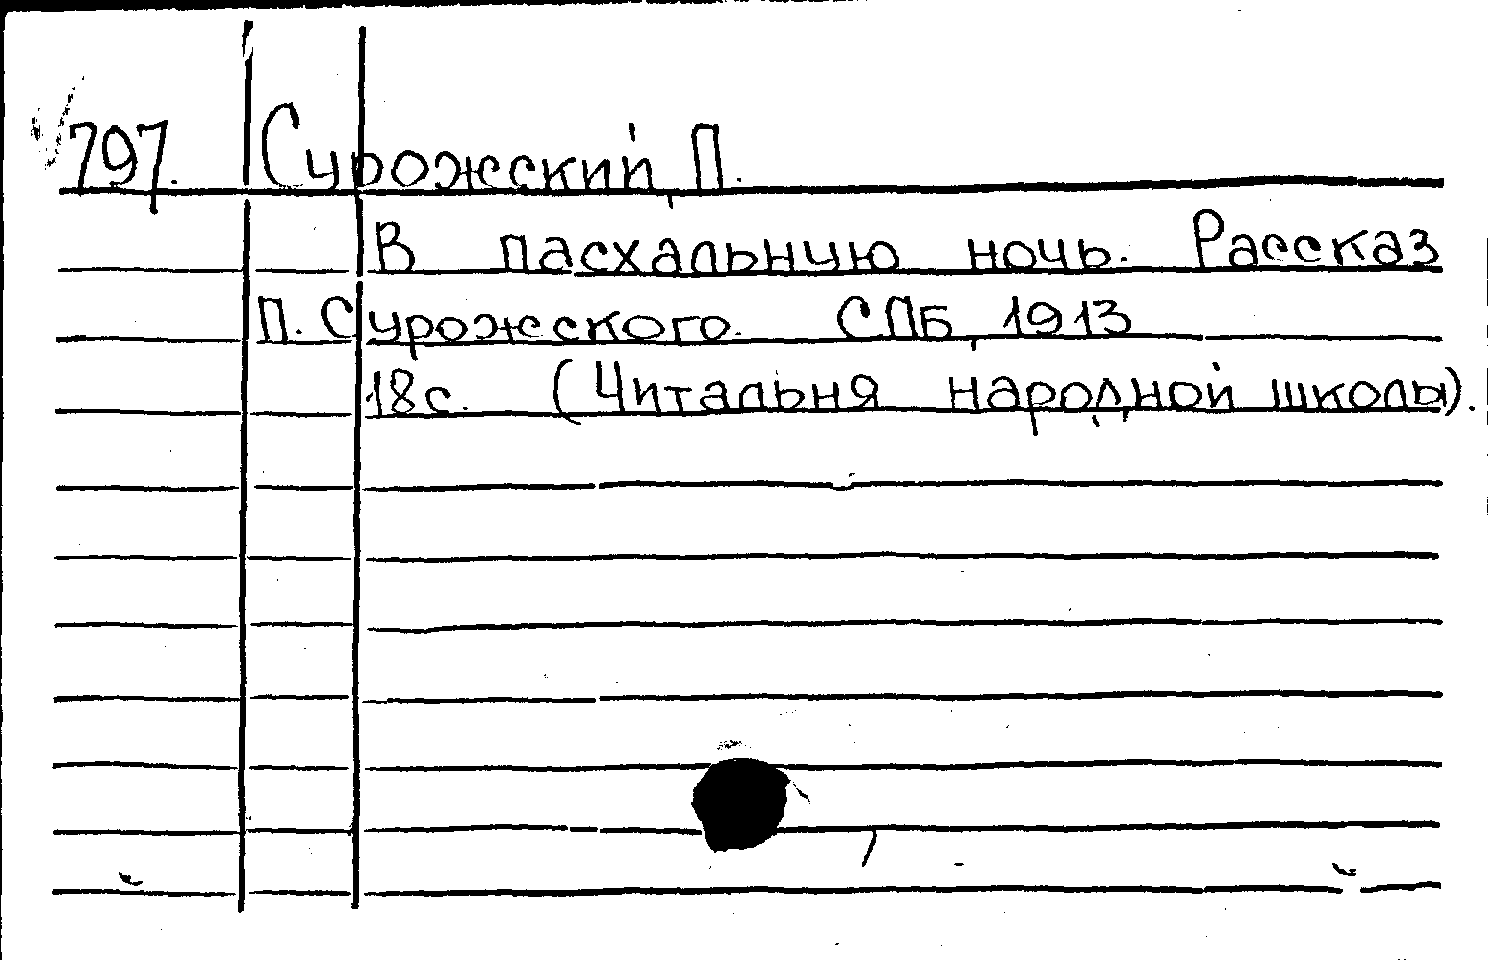 797. Сурожский, П.
В пасхальную ночь. Рассказ
П. Сурожского. СПБ, 1913
18с. (Читальня народной школы).